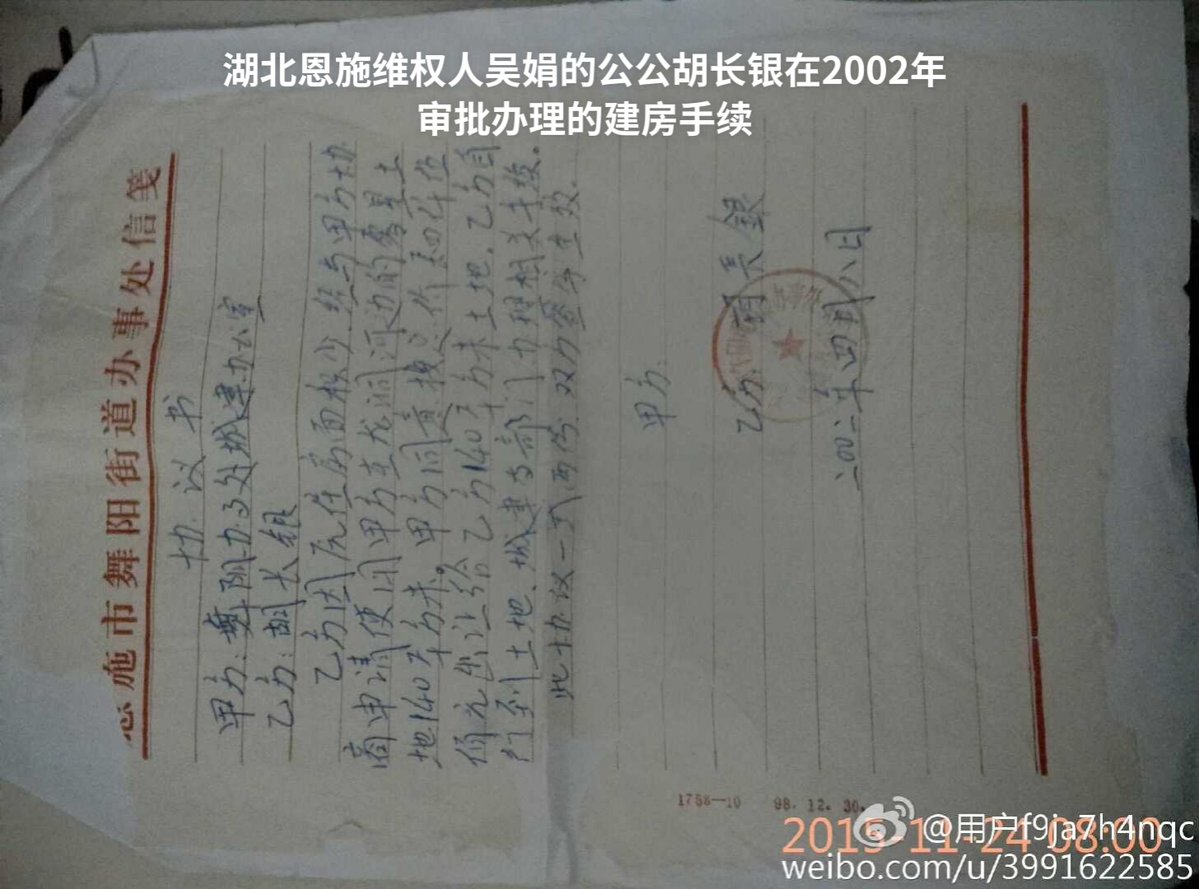 湖北恩施维权人吴娟的公公胡长银在2002年
审批办理的建房手续
恩施市舞阳街道办事处信笺
协议书
甲方:舞阳办事处城建办公室
乙方:胡长银
乙方因原住房面积少,经与甲方协
商申请使用甲方在龙洞河边的零星土
地140平方米。甲方同意按 仟伍
佰元出让给乙方140平方米土地,乙方自
行到土地、城建等部门办理相关手续。
此协议一式两份,双方签字生效。
甲方:
乙方:胡長銀
二00二年四月八日
1758—10 98.12.30.
2015-11-24 08:00
@用户f9ja7h4nqc
weibo.com/u/3991622585